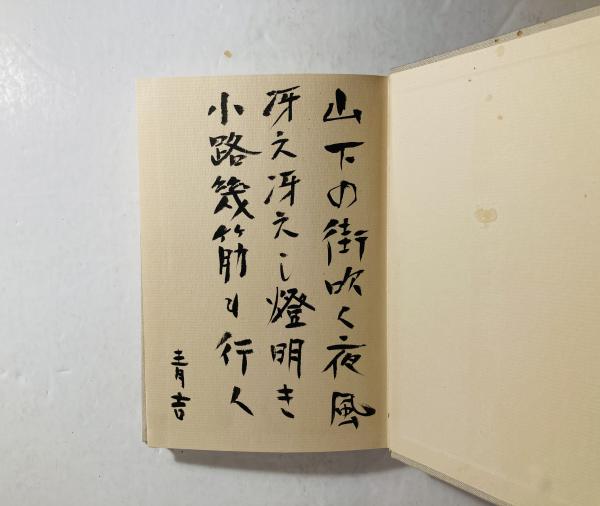 山下の街吹く夜風
冴え冴えし燈明き
小路幾筋も行く
青吉